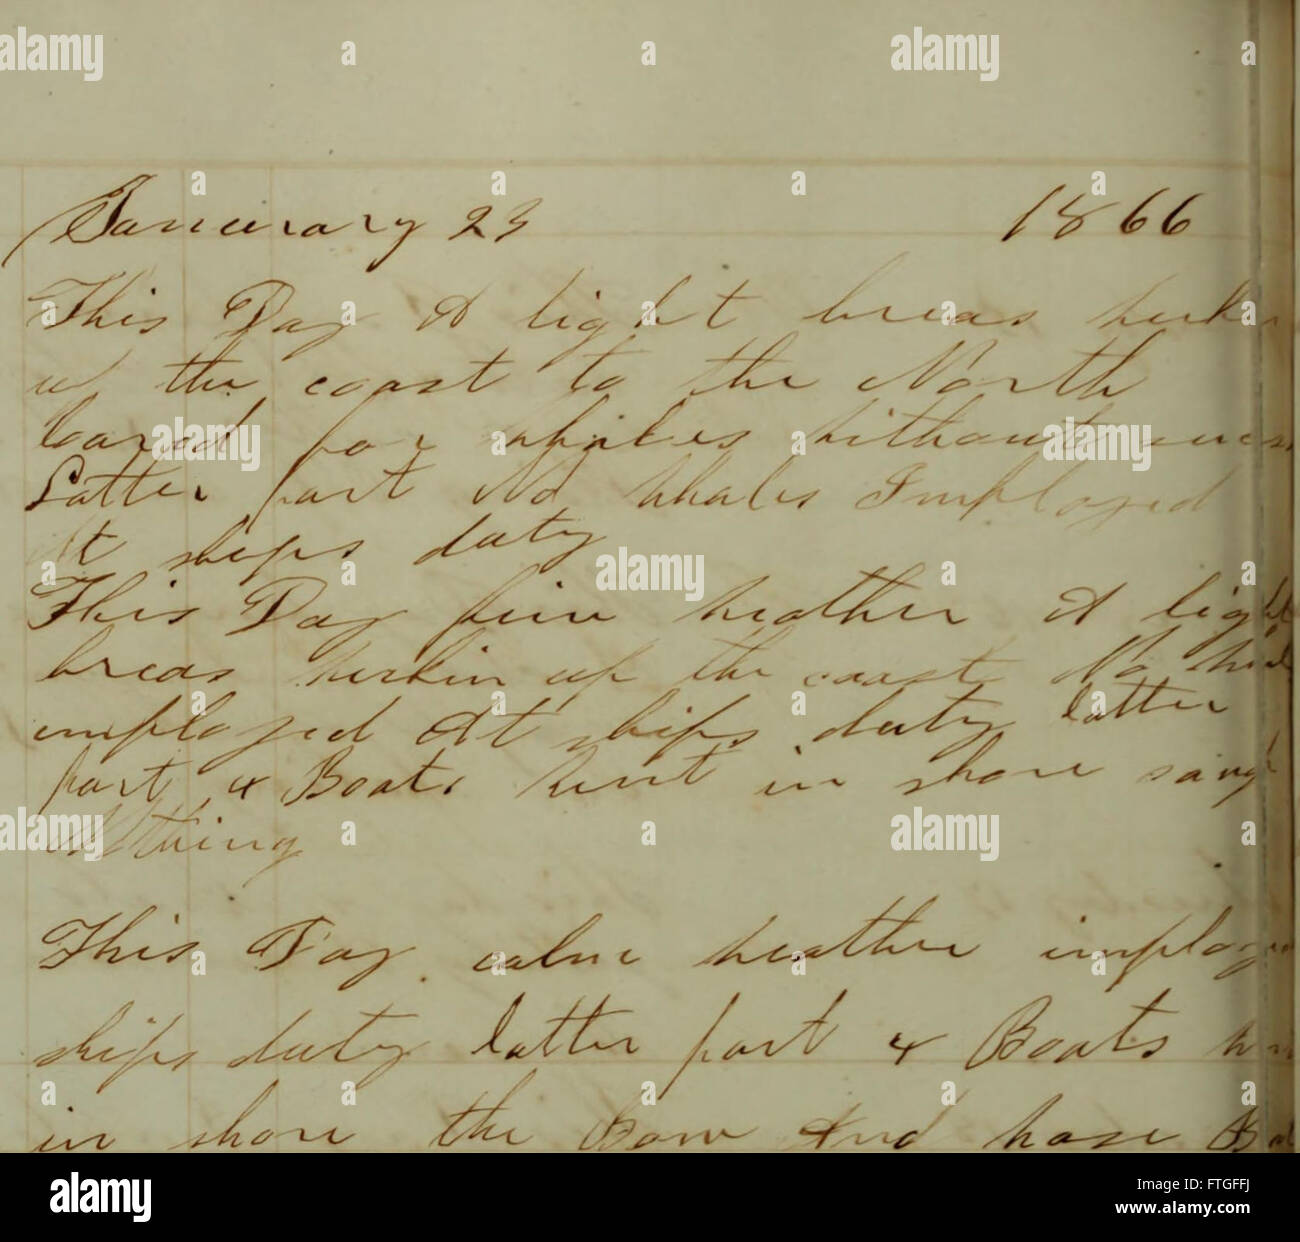 Janeurary 23 1866
This Day A light breas
the coast to the North
for Whales Without
Latter part No Whales Imployed
At ships duty
This Day fine Weather A light
breas Workin up the coast No
imployed At ships duty latter
part 4 Boats Went in shore
Nothing
This Day calm Weather imployed
ships duty latter part 4 Boats
in shore the Bow And
alamy
Image ID: FTGFFJ
www.alamy.com